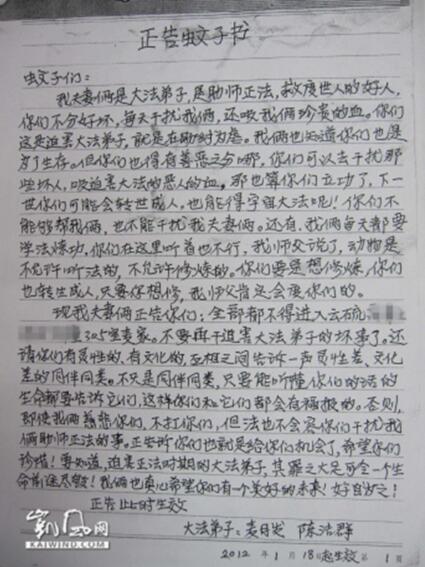 正告蚊子书
蚊子们：
我夫妻俩是大法弟子，是助师正法，救度世人的好人，
你们不分好坏，每天干扰我俩，还吸我俩珍贵的血。你们
这是迫害大法弟子，就是在助纣为虐。我俩也知道你们也是
为了生存。但你们也得有善恶之分哪，你们可以去干扰那
些坏人，吸迫害大法的恶人的血。那也算你们立功了，下一
世你们可能会转世成人，也能得宇宙大法呢！你们不
能够帮我俩，也不能干扰我夫妻俩。还有，我俩每天都要
学法炼功，你们在这里听着也不行，我师父说了，动物是
不允许听法的，不允许修炼的。你们要是想修炼，你们
也转生成人，只要你想修，我师父肯定会度你们的。
现我夫妻俩正告你们：全部都不得进入云硫
305室麦家。不要再干迫害大法弟子的坏事了。还
请你们有灵性的，有文化的，互相之间告诉一声灵性差，文化
差的同伴同类。不只是同伴同类，只要能听懂你们的话的
生命都要告诉它们，这样你们和它们都会有福报的。否则，
即使我俩慈悲你们，不打你们，但法也不会容你们干扰我
俩助师正法的事。正告你们也就是给你们机会了，希望你们
珍惜！要知道，迫害正法时期的大法弟子，其罪之大足可令一个生
命前途尽毁！我俩也真心希望你们有一个美好的未来！好自为之！
正告此时生效
大法弟子：麦日发 陈洁群
2012年1月18日起生效 第1页
凯风网
KAIWIND.COM